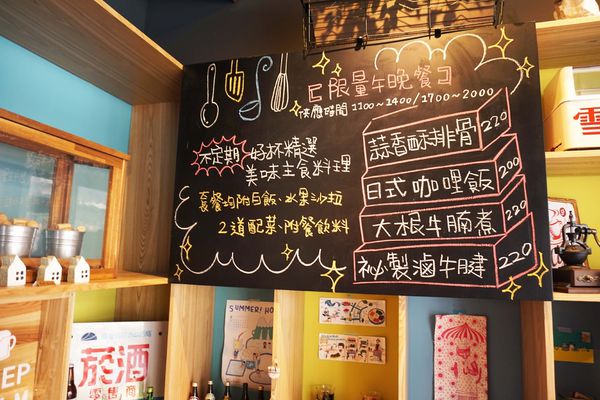 【限量午晚餐】
供應時間 1100~1400/1700~2000
不定期
好杯精選
美味主食料理
套餐均附白飯、水果沙拉
2道配菜、附餐飲料
蒜香酥排骨 220
日式咖哩飯 200
大根牛腩煮 220
祕製滷牛腱 220
雪
SUMMER!
菸酒
零售商
EEP
LM